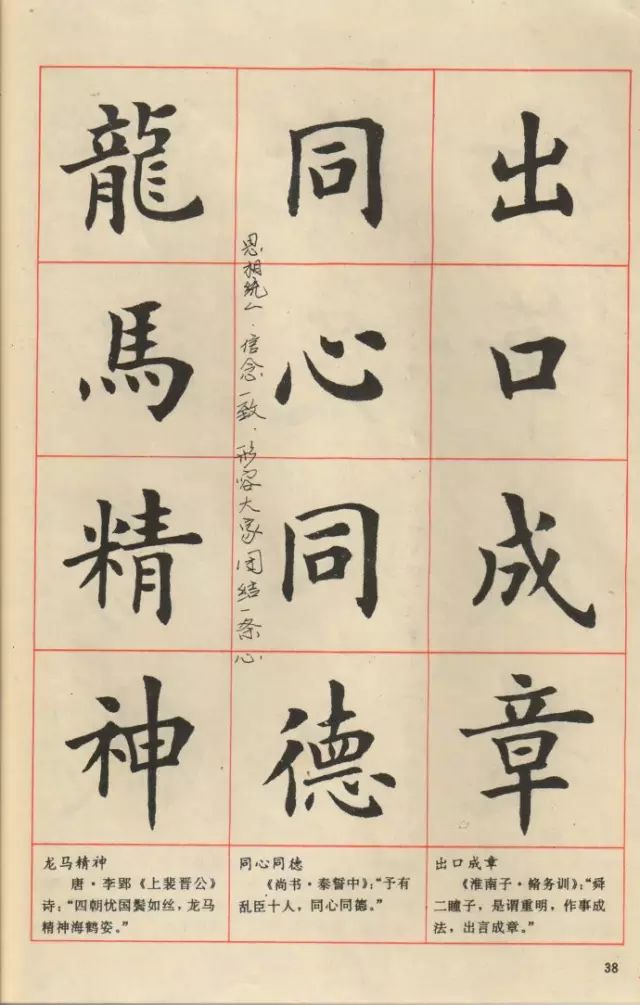 出口成章
同心同德
龍馬精神
思相统一．信念一致．形容大家团结一条心．
出口成章
《淮南子·脩务训》：“舜
二瞳子，是谓重明，作事成
法，出言成章。”
同心同德
《尚书·泰誓中》：“予有
乱臣十人，同心同德。”
龙马精神
唐·李郢《上裴晋公》
诗：“四朝忧国鬓如丝，龙马
精神海鹤姿。”
38